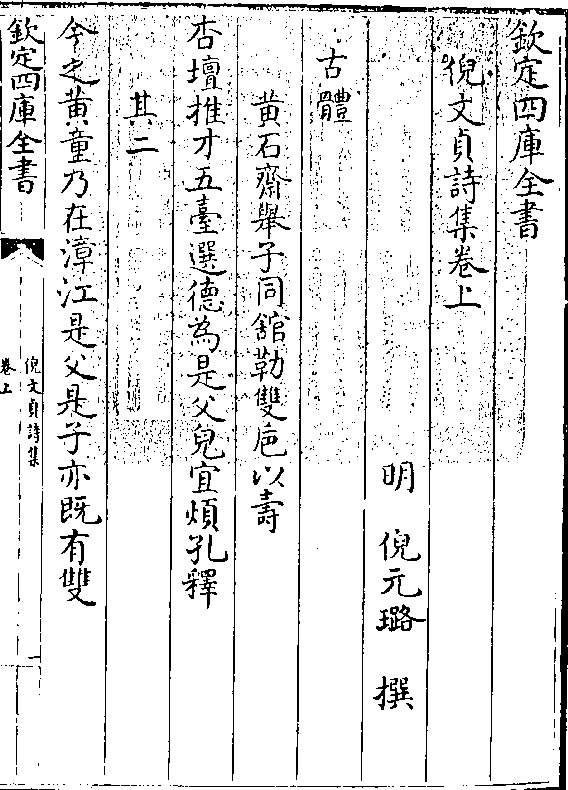 欽定四庫全書
倪文貞詩集卷上
明 倪元璐 撰
古體
黄石齋舉子同舘勒雙巵以壽
杏壇推才五臺選德為是父兒宜煩孔釋
其二
今之黄童乃在漳江是父是子亦既有雙
欽定四庫全書
倪文貞詩集
卷上
一